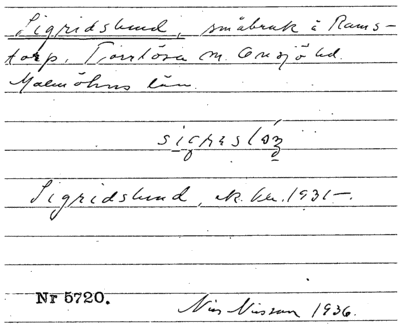 Sigridslund, småbruk å Rams-
torp, Torrlösa sn. Onsjö hd.
Malmöhus län.
Sigridslund, ek. ka. 1931-.
Nr 5720.
Nils Nilsson 1936.